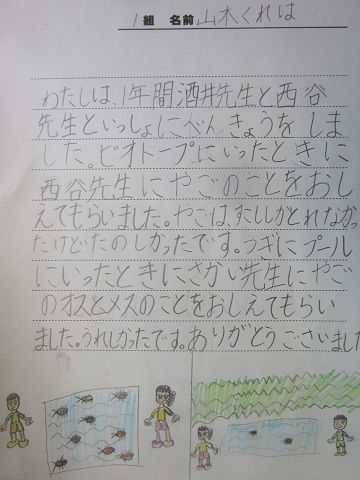 1組 名前 山木くれは
わたしは、1年間酒井先生と西谷
先生といっしょにべんきょうをしま
した。ビオトープにいったときに
西谷先生にやごのことをおし
えてもらいました。やごはすこししかとれなかっ
たけどたのしかったです。つぎにプール
にいったときにさかい先生にやご
のオスとメスのことをおしえてもらい
ました。うれしかったです。ありがとうございました